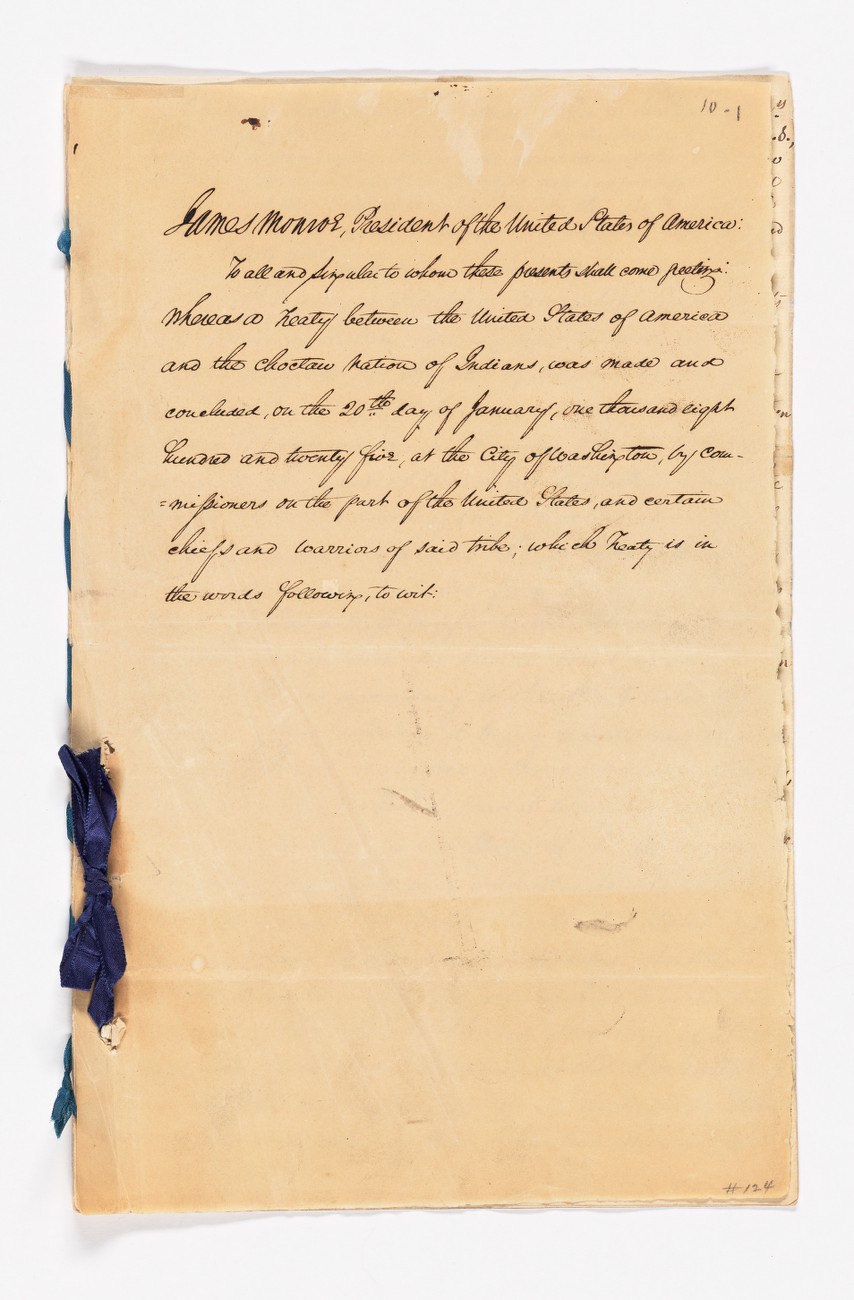 10-1
James Monroe, President of the United States of America:
To all and singular to whom these presents shall come greeting:
Whereas a Treaty between the United States of America
and the Choctaw Nation of Indians, was made and
concluded, on the 20th day of January, one thousand eight
hundred and twenty five, at the City of Washington, by com-
=missioners on the part of the United States, and certain
chiefs and warriors of said tribe; which Treaty is in
the words following, to wit:
#124